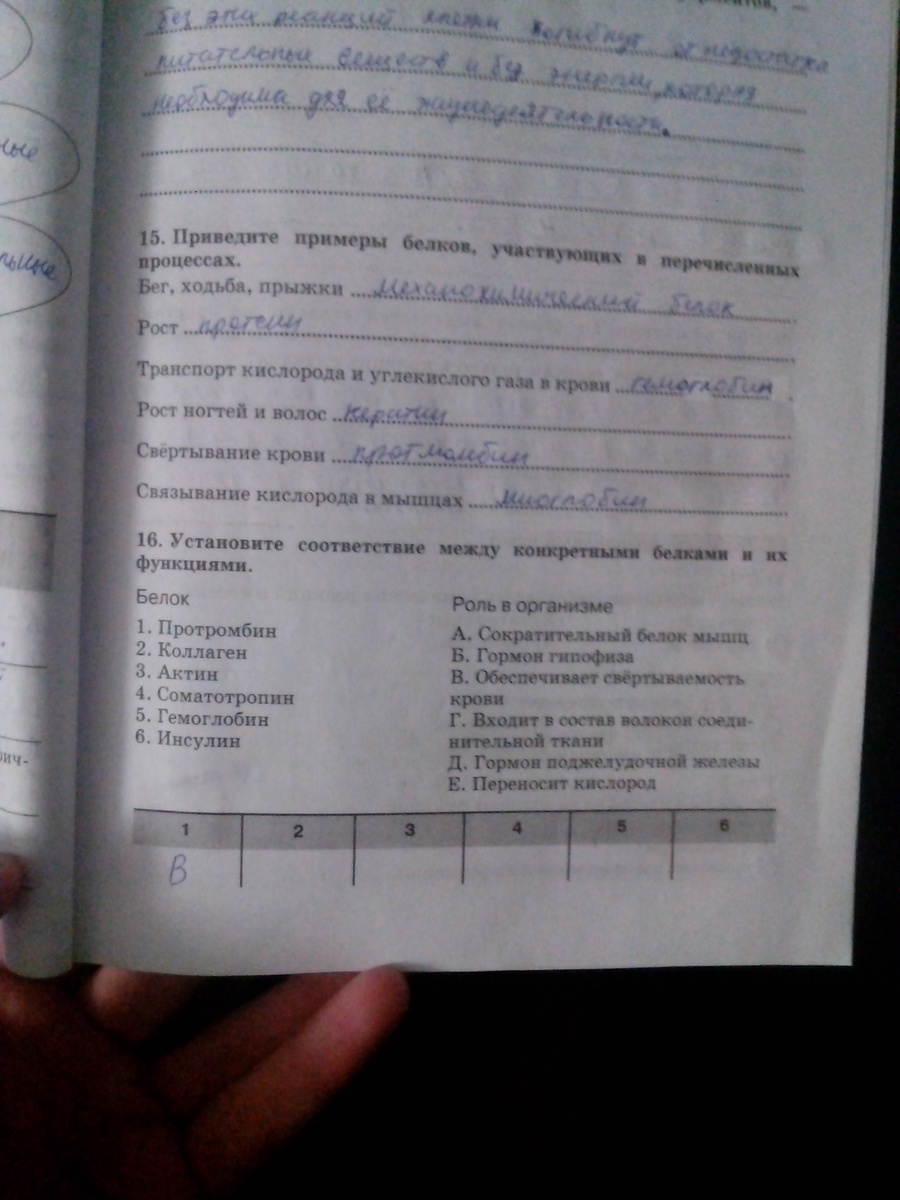 без этих реакций клетки погибнут от недостатка
питательных веществ и без энергии, которая
необходима для её жизнедеятельности.
ные
льные
15. Приведите примеры белков, участвующих в перечисленных
процессах.
Бег, ходьба, прыжки механохимический белок
Рост протеин
Транспорт кислорода и углекислого газа в крови гемоглобин
Рост ногтей и волос кератин
Свёртывание крови протмомбин
Связывание кислорода в мышцах миоглобин
16. Установите соответствие между конкретными белками и их
функциями.
Белок
1. Протромбин
2. Коллаген
3. Актин
4. Соматотропин
5. Гемоглобин
6. Инсулин
Роль в организме
А. Сократительный белок мышц
Б. Гормон гипофиза
В. Обеспечивает свёртываемость
крови
Г. Входит в состав волокон соеди-
нительной ткани
Д. Гормон поджелудочной железы
Е. Переносит кислород
ич-
1 2 3 4 5 6
В